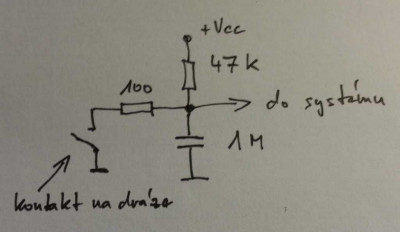 +Vcc
47k
100
do systému
1M
kontakt na dráze